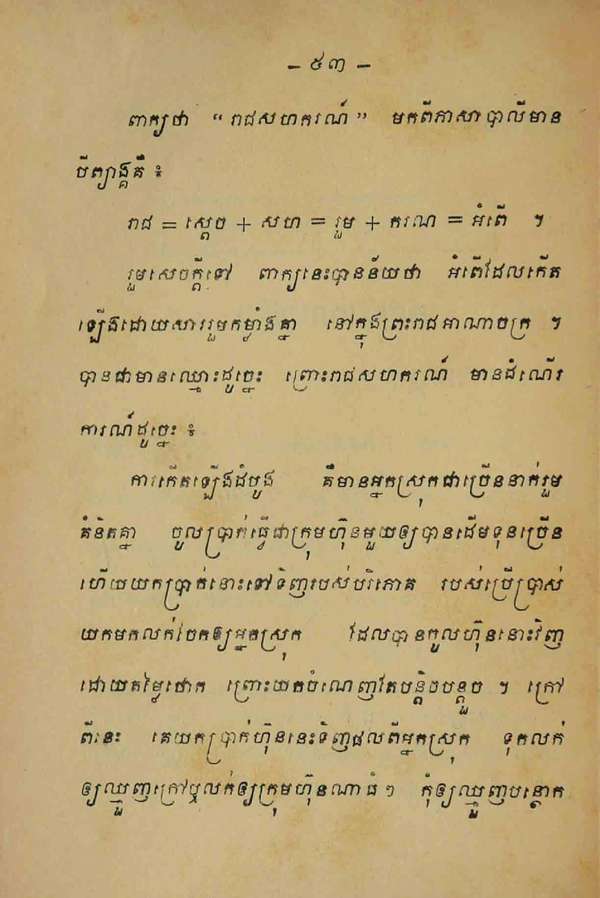 – ៥៣ –
ពាក្យថា “រាជសហករណ៍” មកពីភាសាបាលីមាន
បីព្យាង្គគឺ ៖
រាជ = ស្ដេច + សហ = រួម + ករណ = អំពើ ។
រួមសេចក្ដីទៅ ពាក្យនេះបានន័យថា អំពើដែលកើត
ឡើងដោយសាររួមកម្លាំងគ្នា នៅក្នុងព្រះរាជអាណាចក្រ ។
បានជាមានឈ្មោះដូច្នេះ ព្រោះរាជសហករណ៍ មានដំណើរ
ការណ៍ដូច្នេះ ៖
ការកើតឡើងដំបូង គឺមានអ្នកស្រុកជាច្រើននាក់រួម
គំនិតគ្នា ចូលប្រាក់ធ្វើជាក្រុមហ៊ុនមួយឲ្យបានដើមទុនច្រើន
ហើយយកប្រាក់នោះទៅទិញរបស់បរិភោគ របស់ប្រើប្រាស់
យកមកលក់ចែកឲ្យអ្នកស្រុក ដែលបានចូលហ៊ុននោះវិញ
ដោយតម្លៃថោក ព្រោះយកចំណេញតែបន្តិចបន្តួច ។ ក្រៅ
ពីនេះ គេយកប្រាក់ហ៊ុននេះទិញផលពីអ្នកស្រុក ទុកលក់
ឲ្យឈ្មួញក្រៅឬលក់ឲ្យក្រុមហ៊ុនណាធំៗ កុំឲ្យឈ្មួញបន្ថោក